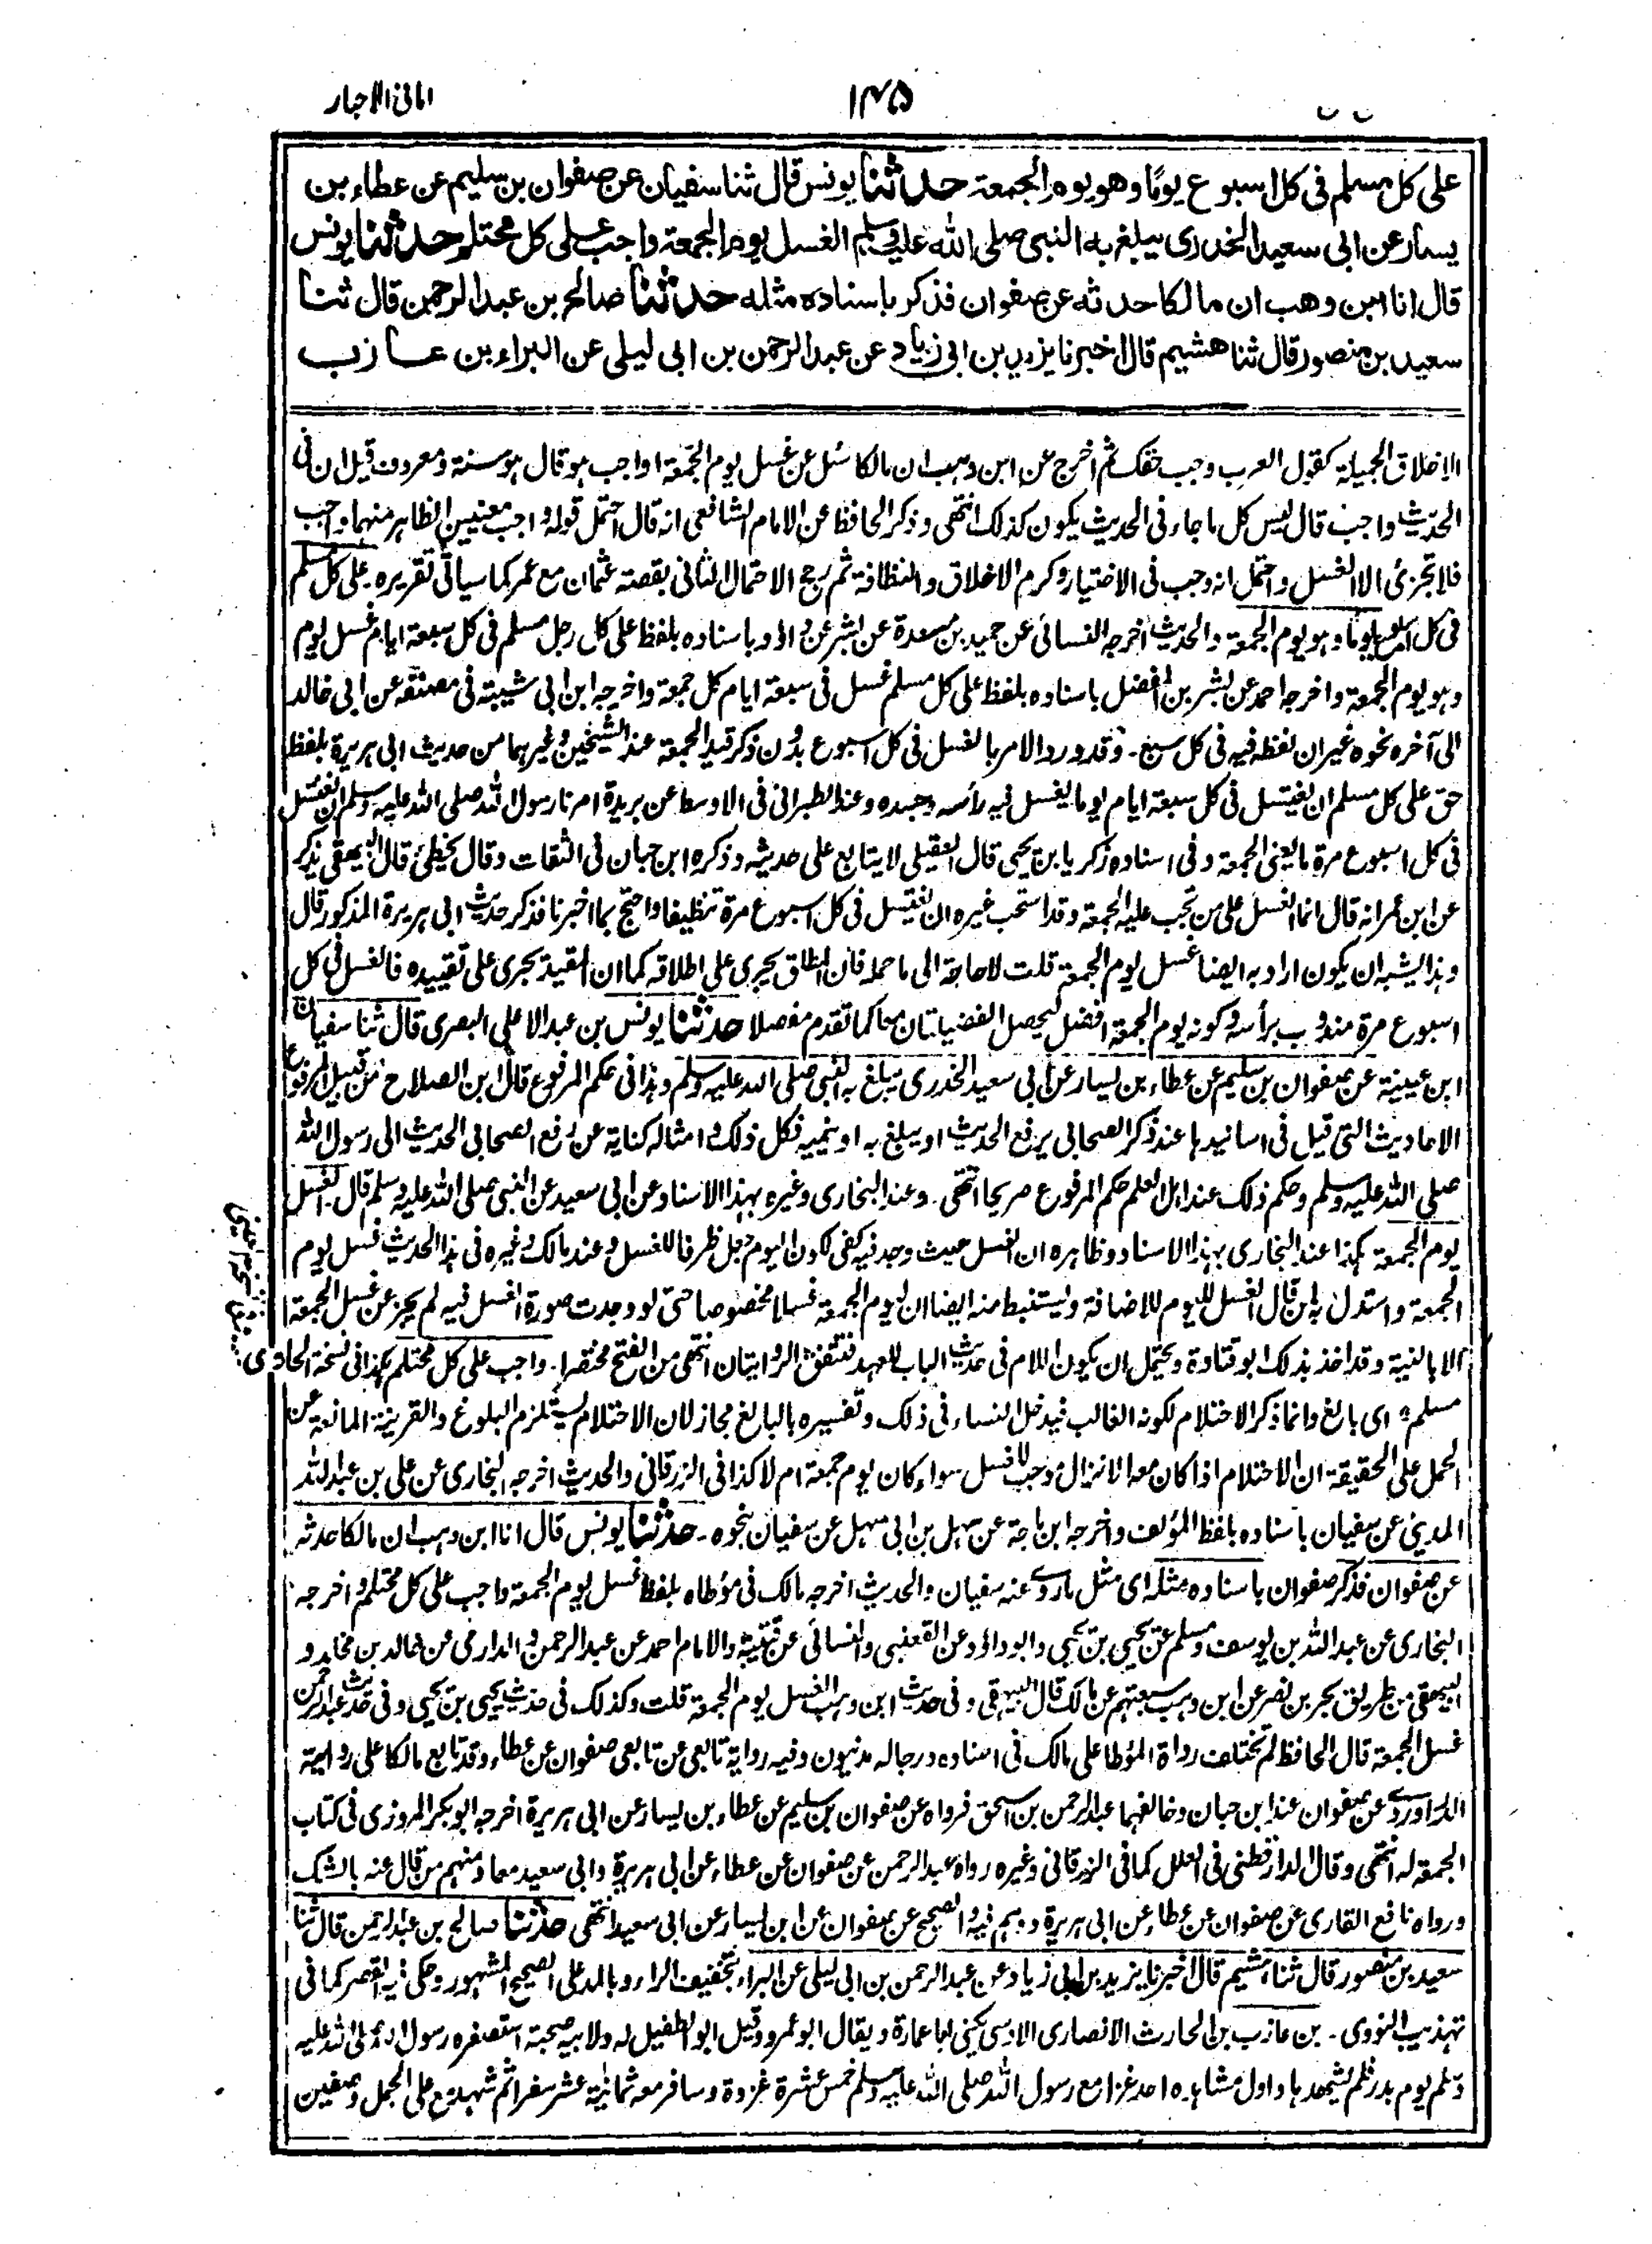 امانی الاحبار
۱۴۵
على كل مسلم فى كل اسبوع يومًا وهو يوم الجمعة حدثنا يونس قال ثنا سفيان عن صفوان بن سليم عن عطاء بن
يسار عن ابى سعيد الخدرى يبلغ به النبى صلى الله عليه وسلم الغسل يوم الجمعة واجب على كل محتلم حدثنا يونس
قال انا ابن وهب ان مالكا حدثه عن صفوان فذكر باسناده مثله حدثنا صالح بن عبد الرحمن قال ثنا
سعيد بن منصور قال ثنا هشيم قال اخبرنا يزيد بن ابى زياد عن عبد الرحمن بن ابى ليلى عن البراء بن عازب
الاخلاق الجميلة كقول العرب وجب حقك ثم اخرج عن ابن وهب ان مالكا سئل عن غسل يوم الجمعة اواجب هو قال هو سنة ومعروف قيل ان فى
الحديث واجب قال ليس كل ما جاء فى الحديث يكون كذلك انتهى وذكر الحافظ عن الامام الشافعى انه قال احتمل قوله واجب معنيين الظاهر منهما واجب
فلا تجزئ الا الغسل واحتمل انه وجب فى الاختيار وكرم الاخلاق والنظافة ثم رجح الاحتمال الثانى بقصة عثمان مع عمر كما سيأتى تقريره على كل مسلم
فى كل اسبوع يوما وهو يوم الجمعة والحديث اخرجه النسائى عن حميد بن مسعدة عن بشر عن داؤد باسناده بلفظ على كل رجل مسلم فى كل سبعة ايام غسل يوم
وهو يوم الجمعة واخرجه احمد عن بشر بن المفضل باسناده بلفظ على كل مسلم غسل فى سبعة ايام كل جمعة واخرجه ابن ابى شيبة فى مصنفه عن ابى خالد
الى آخره نحوه غير ان لفظه فيه فى كل سبع۔ وقد ورد الامر بالغسل فى كل اسبوع بدون ذكر قيد الجمعة عند الشيخين وغيرهما من حديث ابى هريرة بلفظ
حق على كل مسلم ان يغتسل فى كل سبعة ايام يوما يغسل فيه رأسه وجسده وعند الطبرانى فى الاوسط عن بريدة امرنا رسول الله صلى الله عليه وسلم ان نغتسل
فى كل اسبوع مرة يعنى الجمعة وفى اسناده زكريا بن يحيى قال العقيلى لا يتابع على حديثه وذكره ابن حبان فى الثقات وقال يخطئ قال البيهقى يذكر
عن ابن عمر انه قال انما الغسل على من تجب عليه الجمعة وقد استحب غيره ان يغتسل فى كل اسبوع مرة تنظيفا واحتج بما اخبرنا فذكر حديث ابى هريرة المذكور قال
وهذا يشبه ان يكون اراد به ايضا غسل يوم الجمعة قلت لا حاجة الى ما حمله فان المطلق يجرى على اطلاقه كما ان المقيد يجرى على تقييده فالغسل فى كل
اسبوع مرة مندوب برأسه وكونه يوم الجمعة افضل ليحصل الفضيلتان معا كما تقدم مفصلا حدثنا يونس بن عبد الاعلى البصرى قال ثنا سفيان
ابن عيينة عن صفوان بن سليم عن عطاء بن يسار عن ابى سعيد الخدرى يبلغ به النبى صلى الله عليه وسلم وهذا فى حكم المرفوع قال ابن الصلاح من قبيل المرفوع
الاحاديث التى قيل فى اسانيدها عند ذكر الصحابى يرفع الحديث او يبلغ به او ينميه فكل ذلك وامثاله كناية عن رفع الصحابى الحديث الى رسول الله
صلى الله عليه وسلم وحكم ذلك عند اهل العلم حكم المرفوع صريحا انتهى۔ وعند البخارى وغيره بهذا الاسناد عن ابى سعيد عن النبى صلى الله عليه وسلم قال الغسل
يوم الجمعة هكذا عند البخارى بهذا الاسناد وظاهره ان الغسل حيث وجد فيه كفى لكون اليوم جعل ظرفا للغسل وعند مالك وغيره فى هذا الحديث غسل يوم
الجمعة واستدل به لمن قال الغسل لليوم للاضافة ويستنبط منه ايضا ان ليوم الجمعة غسلا مخصوصا حتى لو وجدت صورة الغسل فيه لم يجز عن غسل الجمعة
الا بالنية وقد اخذ بذلك ابو قتادة ويحتمل ان يكون اللام فى حديث الباب للعهد فتتفق الروايتان انتهى من الفتح مختصرا۔ واجب على كل محتلم هكذا فى نسخة الحاوى
مسلم اى بالغ وانما ذكر الاحتلام لكونه الغالب فيدخل النساء فى ذلك وتفسيره بالبالغ مجاز لان الاحتلام يستلزم البلوغ والقرينة المانعة عن
الحمل على الحقيقة ان الاحتلام اذا كان معه الانزال وجب الغسل سواء كان يوم جمعة ام لا كذا فى الزرقانى والحديث اخرجه البخارى عن على بن عبد الله
المدينى عن سفيان باسناده بلفظ المؤلف واخرجه ابن ماجة عن سهل بن ابى سهل عن سفيان نحوه۔ حدثنا يونس قال انا ابن وهب ان مالكا حدثه
عن صفوان فذكر صفوان باسناده مثله اى مثل ما روى عنه سفيان والحديث اخرجه مالك فى مؤطاه بلفظ غسل يوم الجمعة واجب على كل محتلم واخرجه
البخارى عن عبد الله بن يوسف ومسلم عن يحيى بن يحيى وابوداؤد عن القعنبى والنسائى عن قتيبة والامام احمد عن عبد الرحمن والدارمى عن خالد بن مخلد و
البيهقى من طريق بحر بن نصر عن ابن وهب سبعتهم عن مالك قال البيهقى وفى حديث ابن وهب الغسل يوم الجمعة قلت وكذلك فى حديث يحيى بن يحيى وفى حديث عبد الرحمن
غسل الجمعة قال الحافظ لم تختلف رواة المؤطا على مالك فى اسناده ورجاله مدنيون وفيه رواية تابعى عن تابعى صفوان عن عطاء وقد تابع مالكا على روايته
الدراوردى عن صفوان عند ابن حبان وخالفهما عبد الرحمن بن اسحق فرواه عن صفوان بن سليم عن عطاء بن يسار عن ابى هريرة اخرجه ابو بكر المروزى فى كتاب
الجمعة له انتهى وقال الدارقطنى فى العلل كما فى الزرقانى وغيره رواه عبد الرحمن عن صفوان عن عطاء عن ابى هريرة وابى سعيد معا ومنهم من قال عنه بالشك
ورواه نافع القارى عن صفوان عن عطاء عن ابى هريرة ووهم فيه والصحيح عن صفوان عن ابن يسار عن ابى سعيد انتهى حدثنا صالح بن عبد الرحمن قال ثنا
سعيد بن منصور قال ثنا هشيم قال اخبرنا يزيد بن ابى زياد عن عبد الرحمن بن ابى ليلى عن البراء بتخفيف الراء وبالمد على الصحيح المشهور وحكى فيه القصر كما فى
تهذيب النووى۔ بن عازب بن الحارث الانصارى الاوسى يكنى ابا عمارة ويقال ابو عمرو وقيل ابو الطفيل له ولابيه صحبة استصغره رسول الله صلى الله عليه
وسلم يوم بدر فلم يشهدها واول مشاهده احد غزا مع رسول الله صلى الله عليه وسلم خمس عشرة غزوة وسافر معه ثمانية عشر سفرا ثم شهد مع على الجمل وصفين